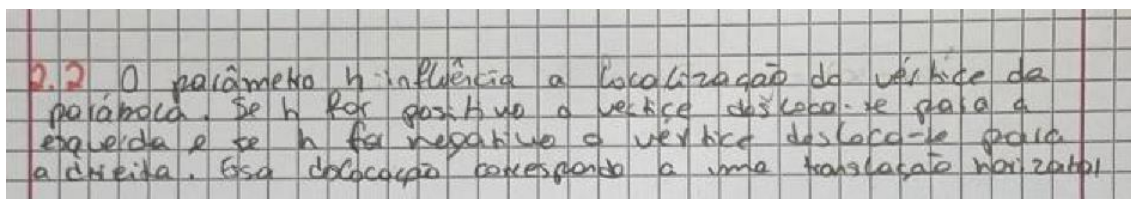 2.2 O parâmetro h influência a localização do vértice da
parábola. Se h for positivo o vertice desloca-se para a
esquerda e se h for negativo o vértice desloca-se para
a direita. Essa corresponde a uma translação horizontal